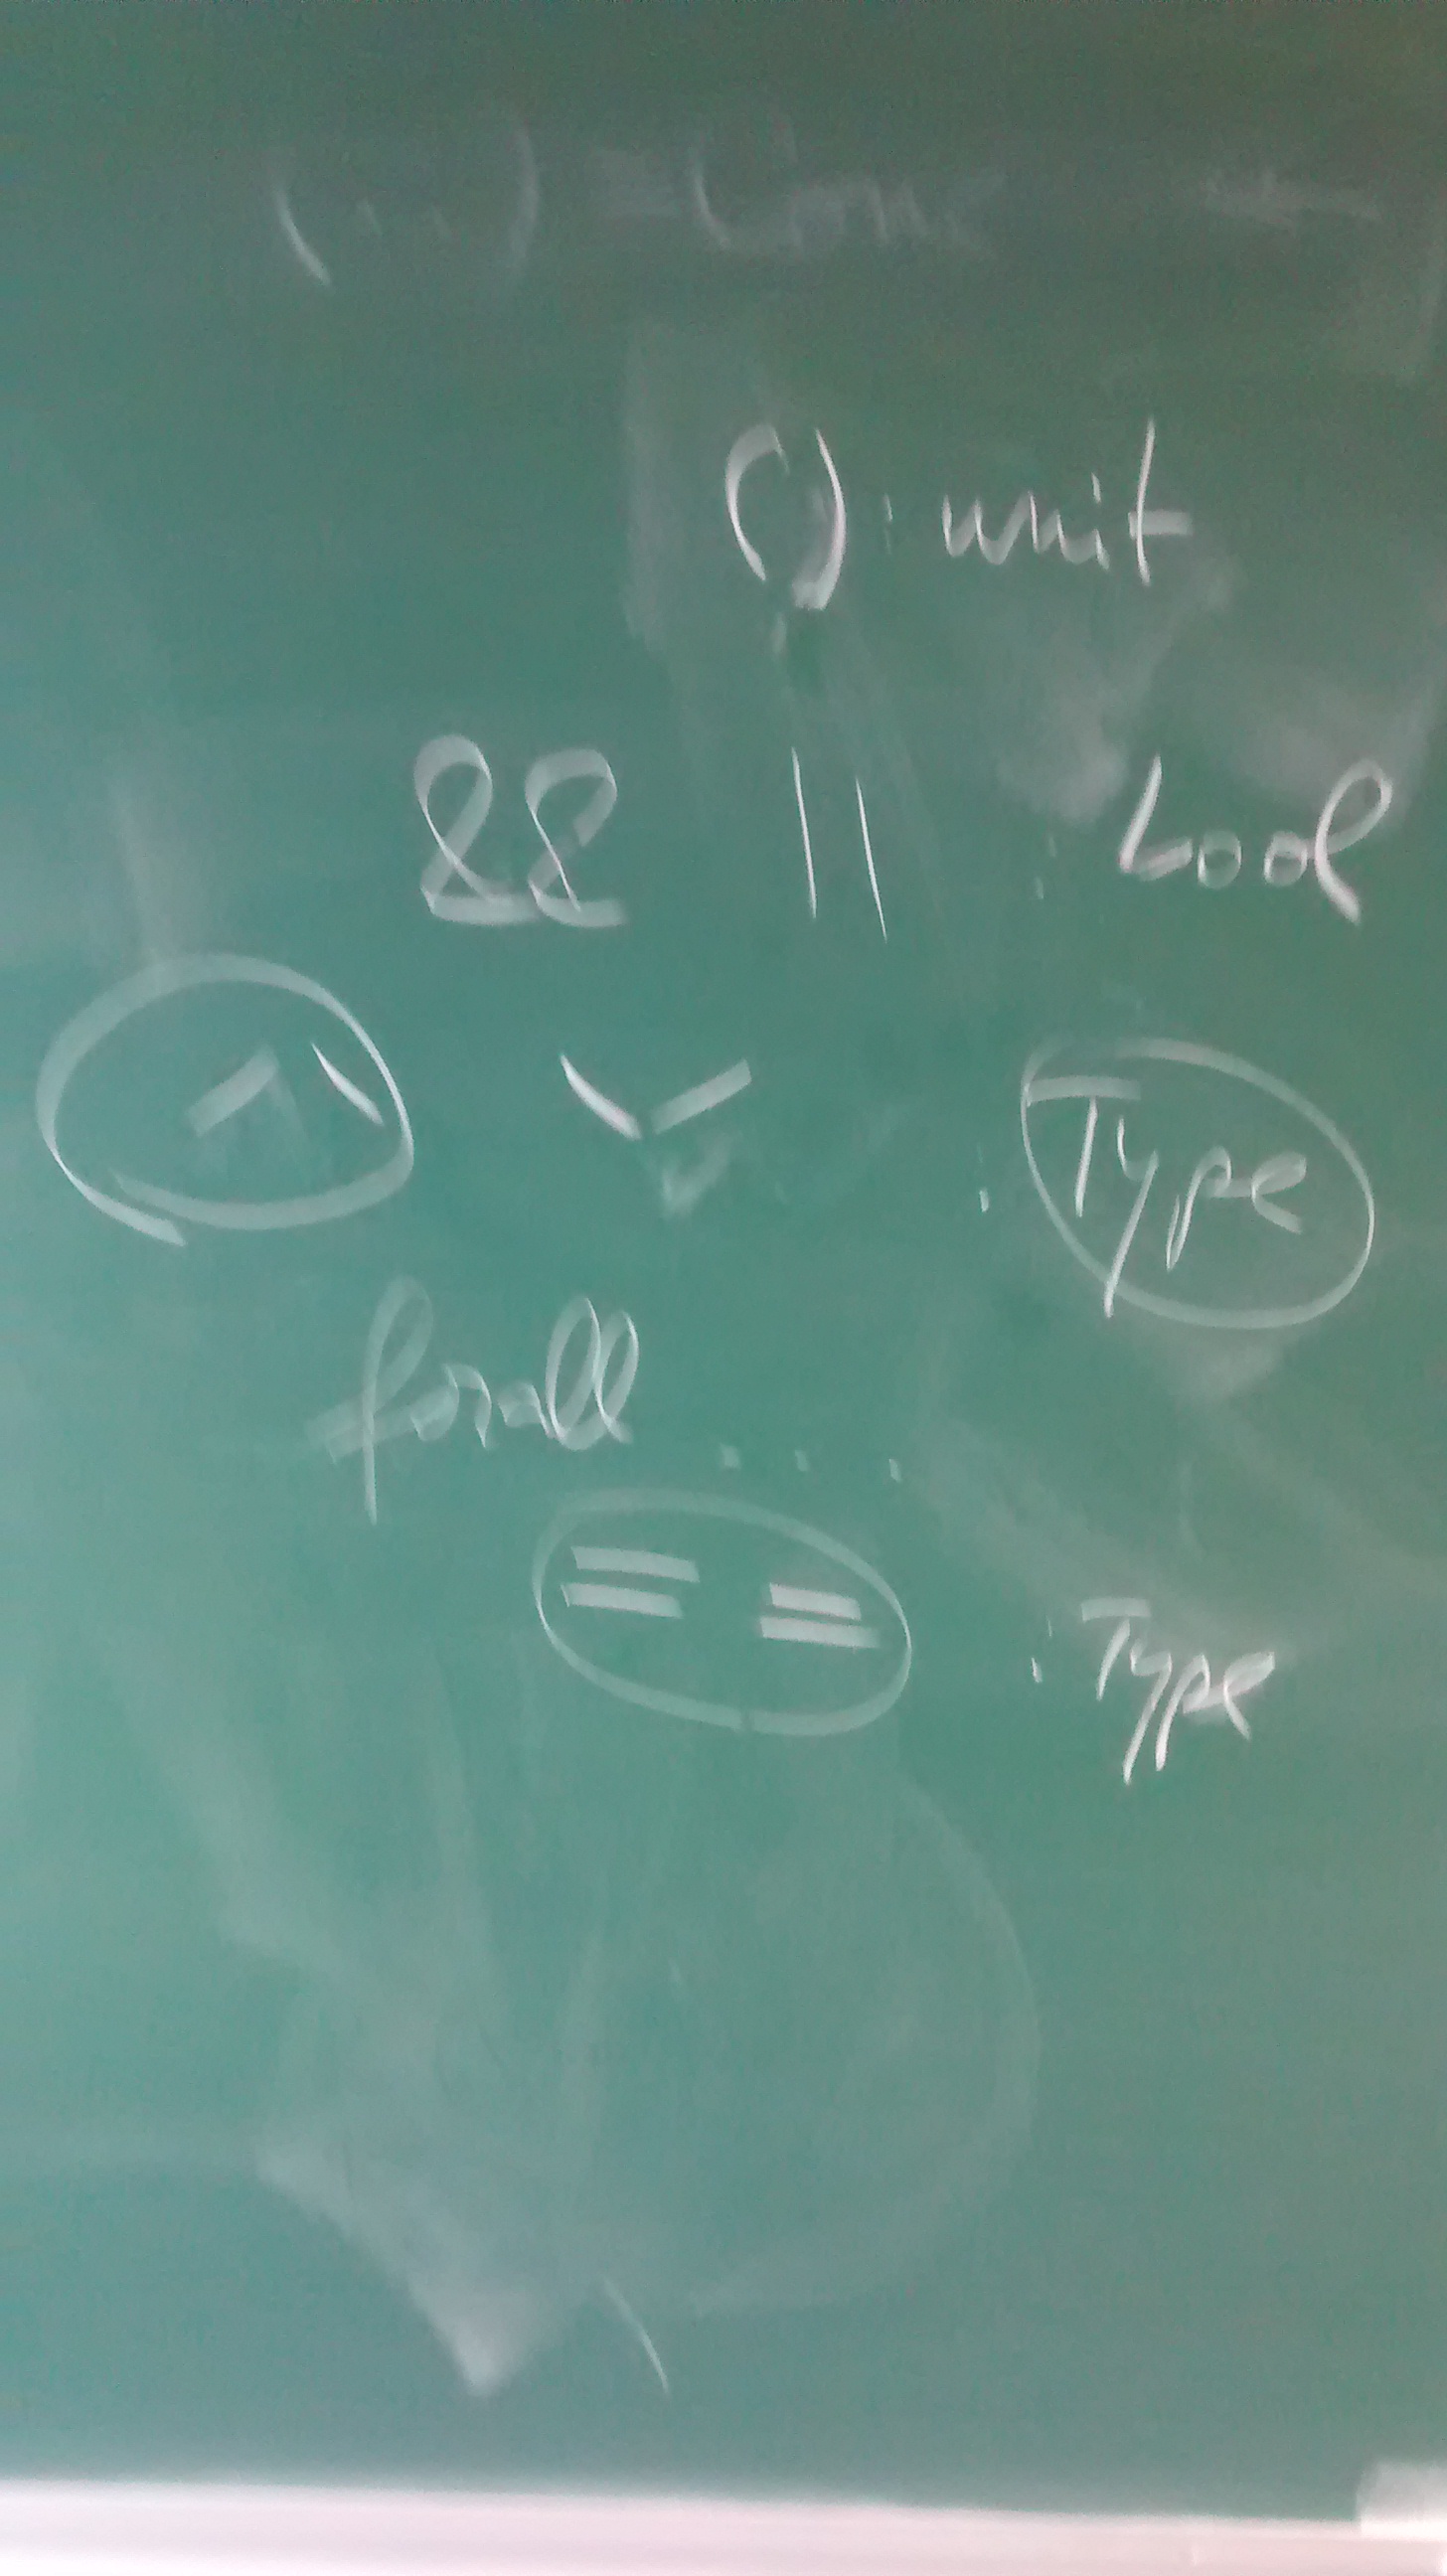 () : unit
&& || : bool
/\ \/ : Type
forall ...
== : Type